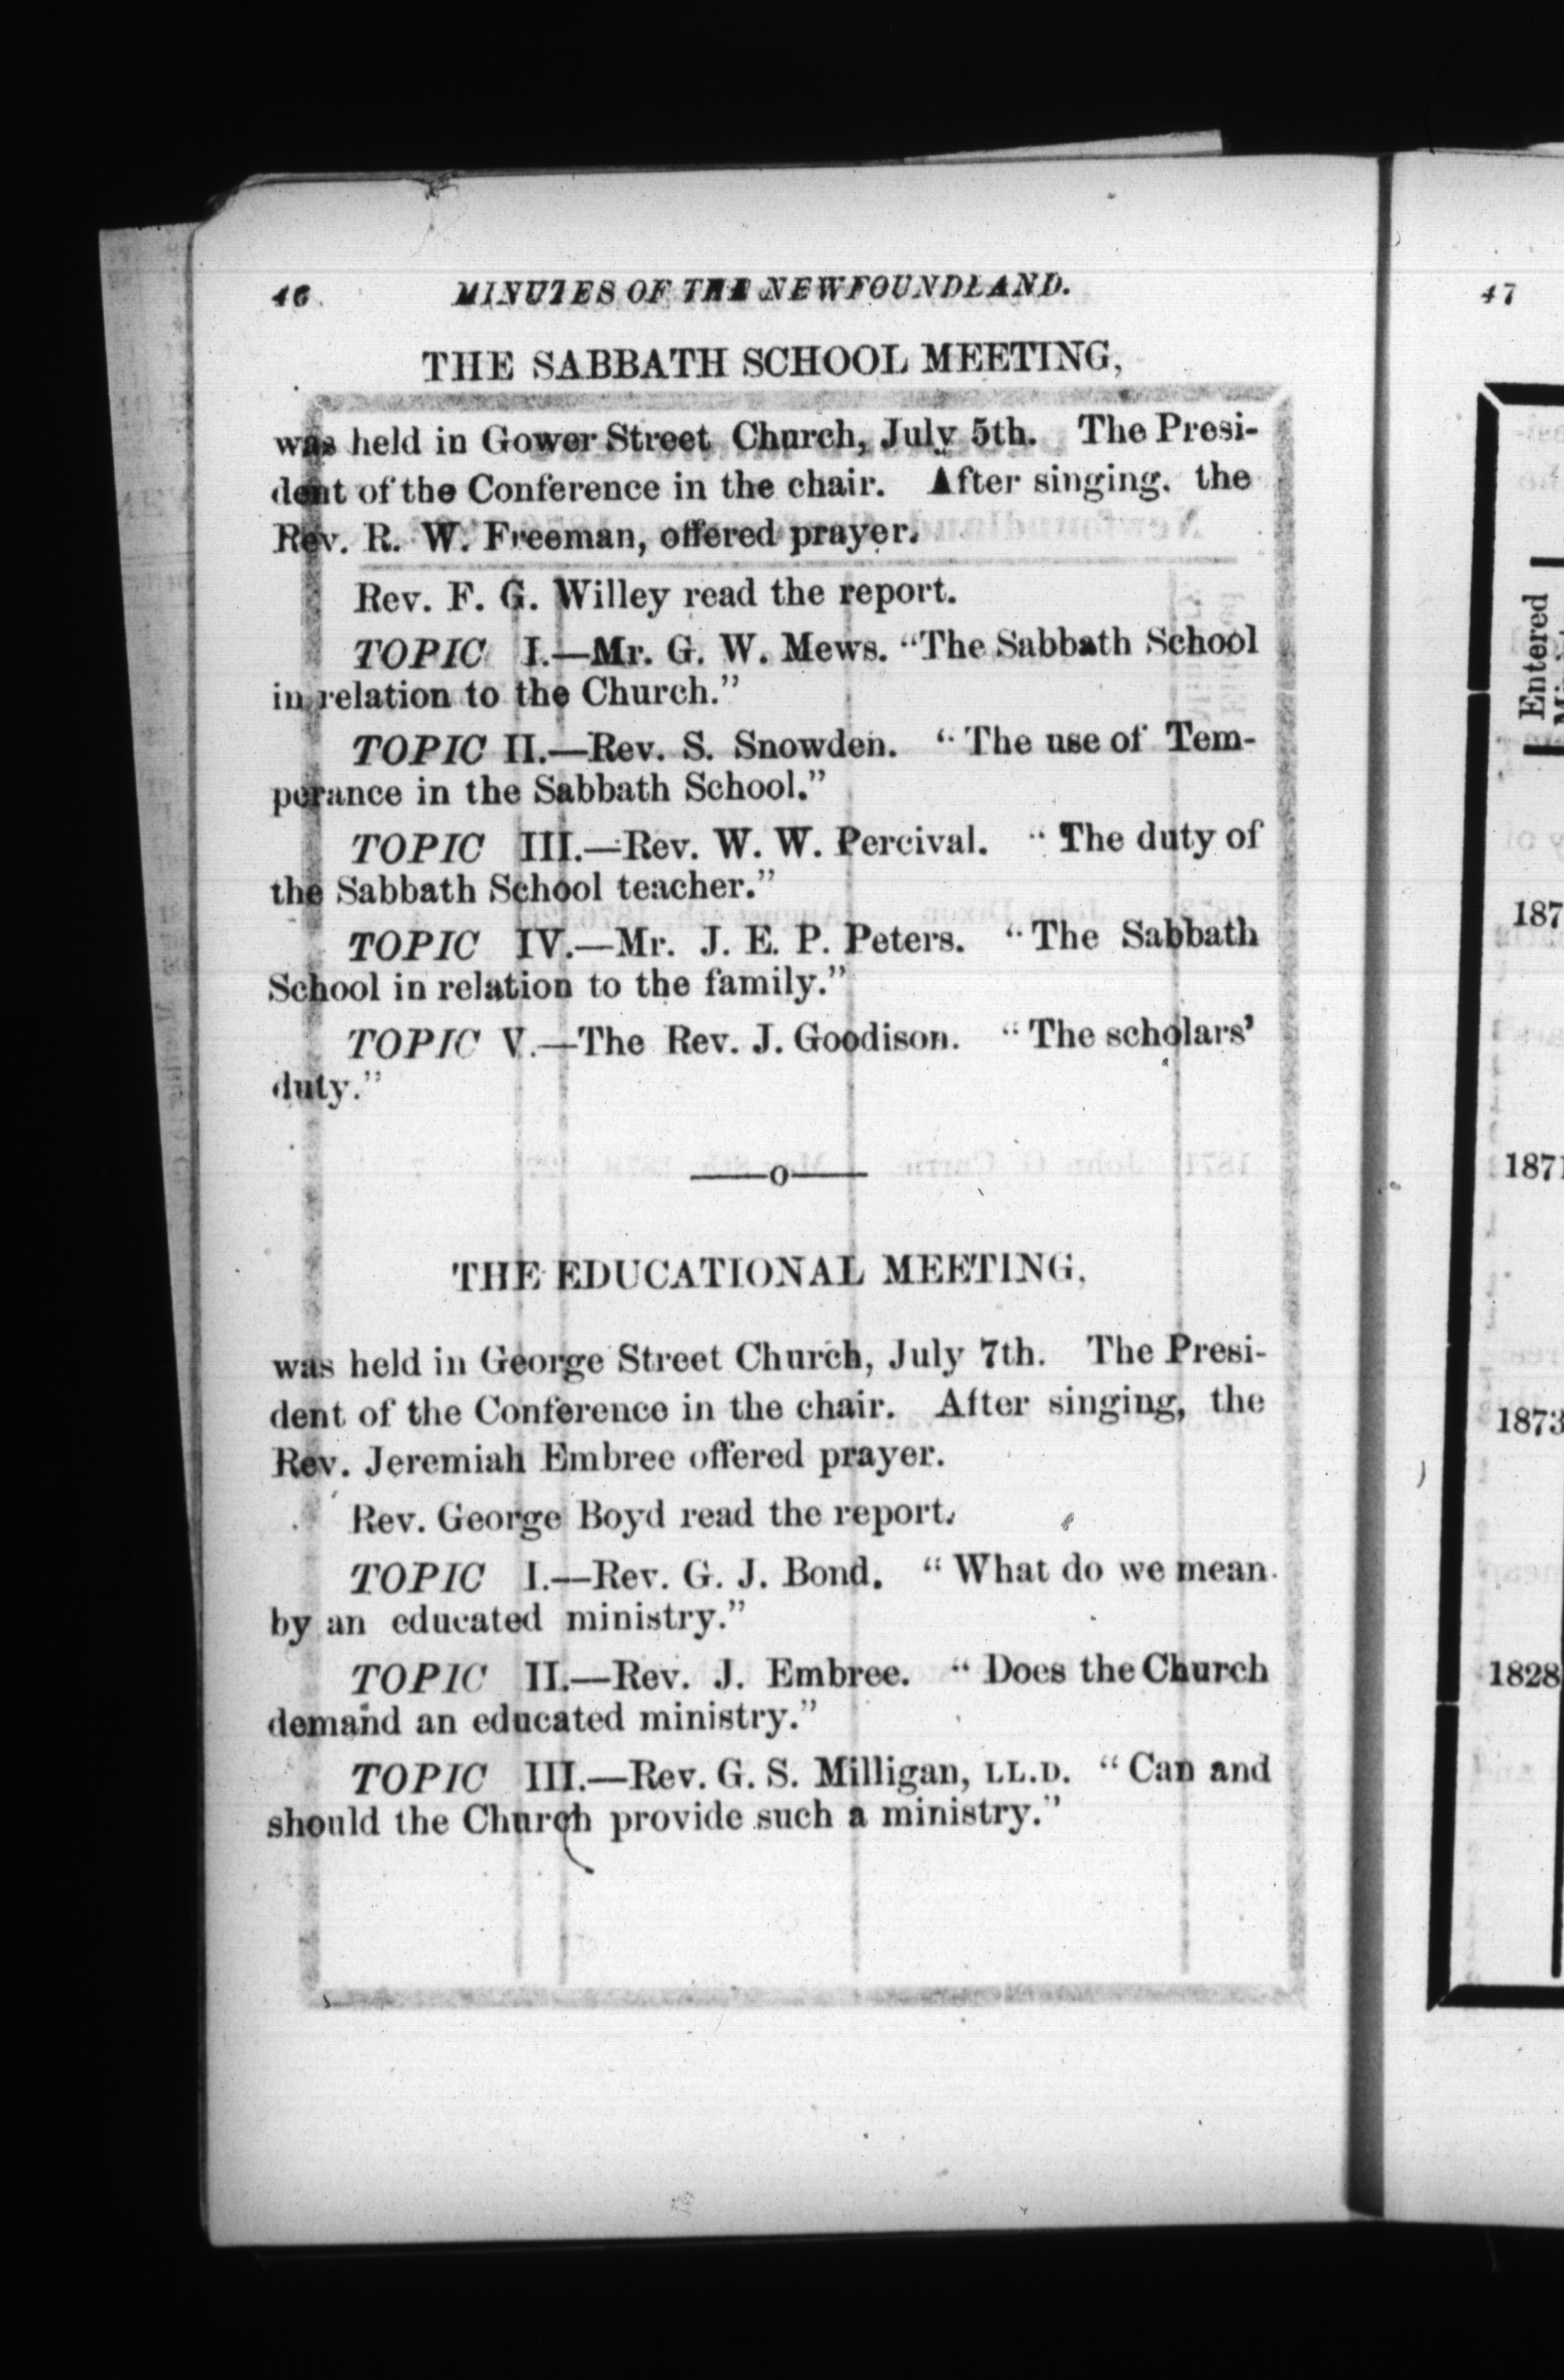 46 MINUTES OF THE NEWFOUNDLAND.
THE SABBATH SCHOOL MEETING,
was held in Gower Street Church, July 5th. The Presi-
dent of the Conference in the chair. After singing, the
Rev. R. W. Freeman, offered prayer.
Rev. F. G. Willey read the report.
TOPIC I.—Mr. G. W. Mews. "The Sabbath School
in relation to the Church."
TOPIC II.—Rev. S. Snowden. "The use of Tem-
perance in the Sabbath School."
TOPIC III.—Rev. W. W. Percival. "The duty of
the Sabbath School teacher."
TOPIC IV.—Mr. J. E. P. Peters. "The Sabbath
School in relation to the family."
TOPIC V.—The Rev. J. Goodison. "The scholars'
duty."
——o——
THE EDUCATIONAL MEETING,
was held in George Street Church, July 7th. The Presi-
dent of the Conference in the chair. After singing, the
Rev. Jeremiah Embree offered prayer.
Rev. George Boyd read the report.
TOPIC I.—Rev. G. J. Bond. "What do we mean
by an educated ministry."
TOPIC II.—Rev. J. Embree. "Does the Church
demand an educated ministry."
TOPIC III.—Rev. G. S. Milligan, LL.D. "Can and
should the Church provide such a ministry."
47
Entered
187
1871
1873
1828